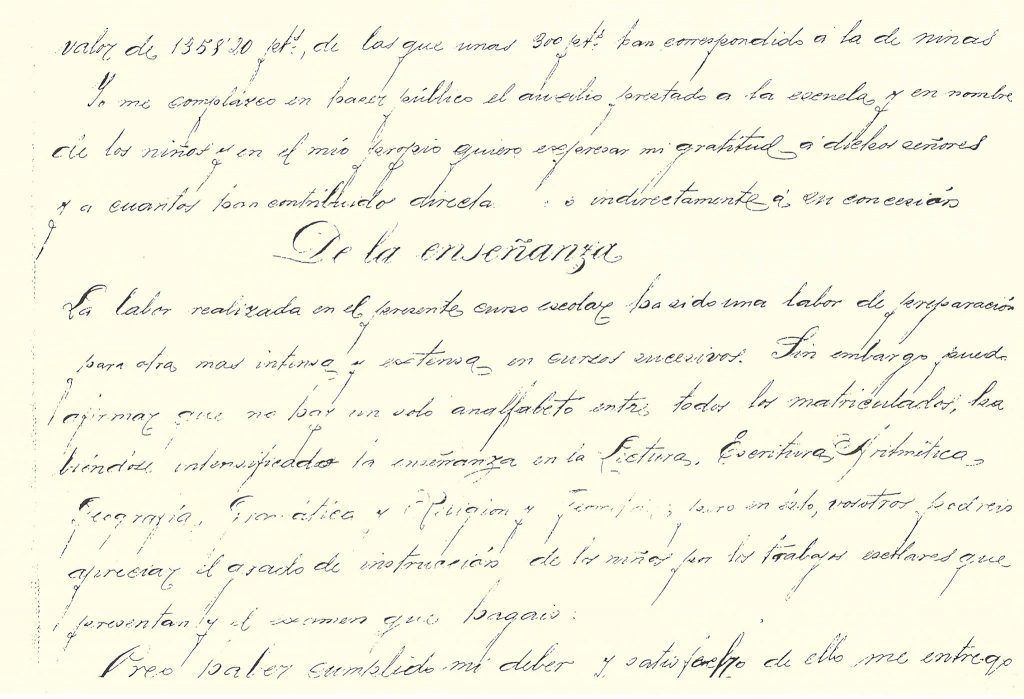 valor de 1358'20 pts, de las que unas 300 pts han correspondido á la de niñas
Yo me complazco en hacer público el auxilio prestado a la escuela, y en nombre
de los niños y en el mio propio quiero expresar mi gratitud á dichos señores
y a cuantos han contribuido directa o indirectamente á su concesión
De la enseñanza
La labor realizada en el presente curso escolar ha sido una labor de preparación
para otra mas intensa y extensa en cursos sucesivos. Sin embargo puedo
afirmar que no hay un solo analfabeto entre todos los matriculados, ha
biéndose intensificado la enseñanza en la Lectura, Escritura, Aritmética
Geografía, Gramática y Religion y pero en esto, vosotros podreis
apreciar el grado de instrucción de los niños por los trabajos escolares que
presentan y el examen que hagais.
Creo haber cumplido mi deber y satisfecho de ello me entrego